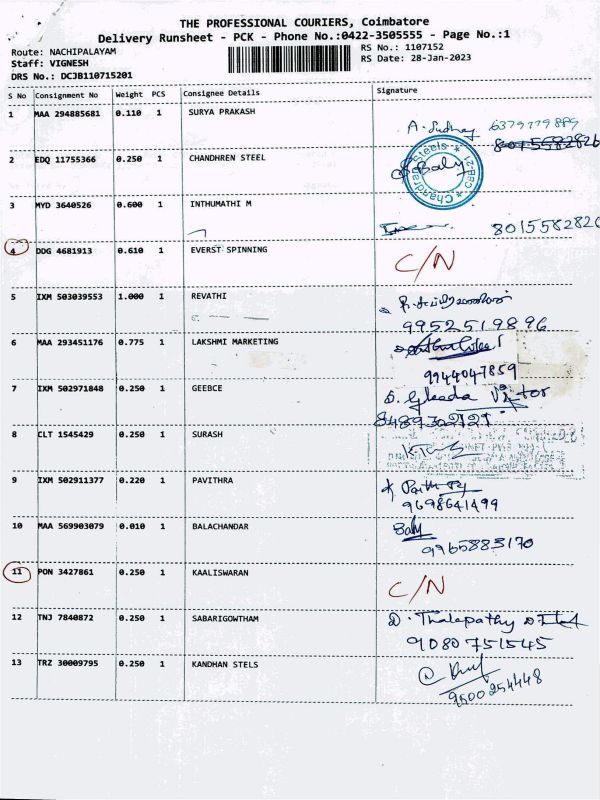 THE PROFESSIONAL COURIERS, Coimbatore
Delivery Runsheet - PCK - Phone No.:0422-3505555 - Page No.:1
Route: NACHIPALAYAM
RS No.: 1107152
Staff: VIGNESH
RS Date: 28-Jan-2023
DRS No.: DCJB110715201
S No Consignment No Weight PCS Consignee Details Signature
1 MAA 294885681 0.110 1 SURYA PRAKASH
6379779889
2 EDQ 11755366 0.250 1 CHANDHREN STEEL
Baly
3 MYD 3640526 0.600 1 INTHUMATHI M
8015582826
4 DDG 4681913 0.610 1 EVERST SPINNING
C/N
5 IXM 503039553 1.000 1 REVATHI
9952519896
6 MAA 293451176 0.775 1 LAKSHMI MARKETING
9944047859
7 IXM 502971848 0.250 1 GEEBCE
8 CLT 1545429 0.250 1 SURASH
9 IXM 502911377 0.220 1 PAVITHRA
9698641499
10 MAA 569903079 0.010 1 BALACHANDAR
Baly
9965883170
11 PON 3427861 0.250 1 KAALISWARAN
C/N
12 TNJ 7840872 0.250 1 SABARIGOWTHAM
D. Thalapathy
9080751545
13 TRZ 30009795 0.250 1 KANDHAN STELS
9500254448